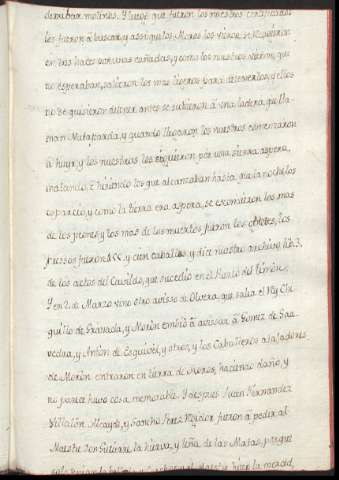 derribar molinos. Y luego que fueron los nuestros certificados
les fueron à buscar, y assi que los Moros los vieron, se repartieron
en tres haces por unas cañadas, y como los nuestros vieron, que
no esperaban, salieron los mas ligeros para detenerlos, y ellos
no se quisieron detener antes se subieron à una ladera, que lla-
man Matapardas, y quando llegaron los nuestros comenzaron
à huyr, y los nuestros los siguieron por una sierra aspera,
matando, è hiriendo los que alcanzaban hasta que la noche los
esparció, y como la tierra era aspera, se escondieron los mas
de los peones, y los mas de los muertos fueron los de los
pressos fueron y cien caballos, y dice nuestro archivo lib. 3,
de los actos del Cavildo, que sucedió en el Puerto del
Y en 2 de Marzo vino otro avisso de Olvera, que salia el Rey Chi-
quillo de Granada, y Morón embió à avissar à Gomez de Saa-
vedra, y Anton de Esquivel, y otros, y los Caballeros
de Morón entraron en tierra de Moros, haciendo daño, y
no parece huvo cosa memorable. Y despues Juan Fernandez
Villalon Alcayde, y Sancho Perez Regidor fueron à pedir al
Maestre Don Gutierre, la hierva, y leña de las Matas, porque